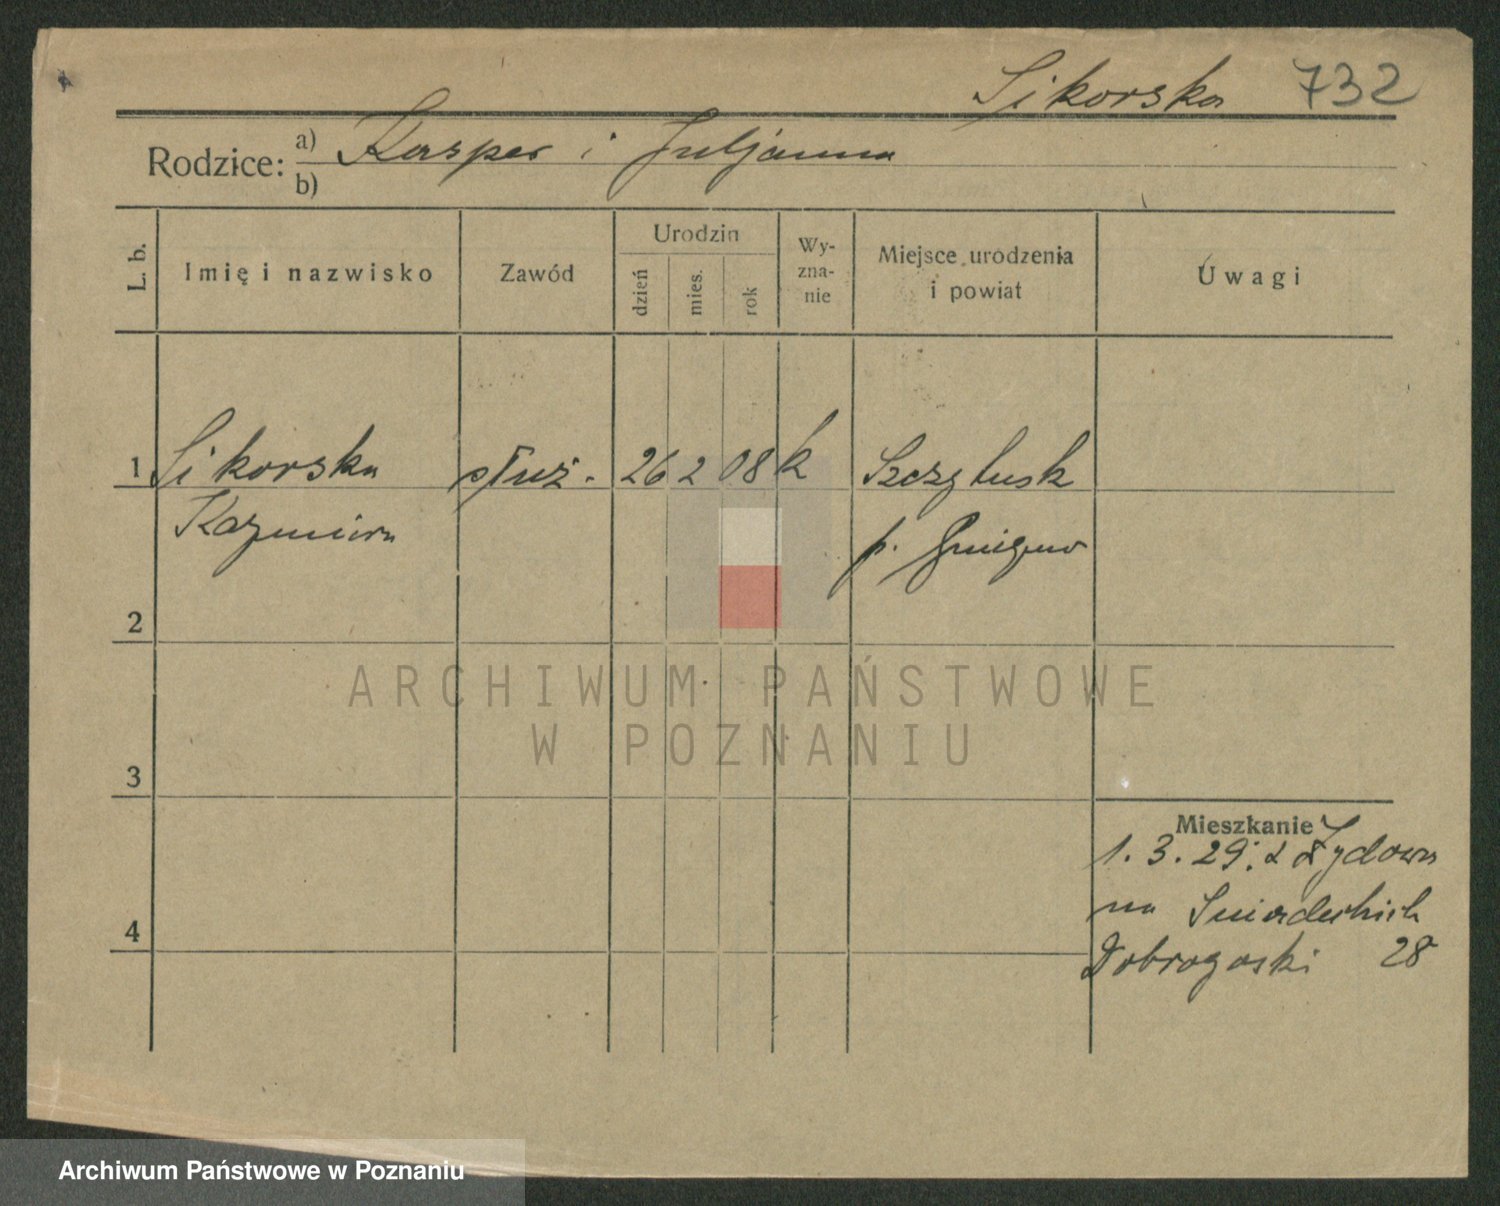 Sikorska 732
Rodzice: a) Kasper i Juljanna
b)
L. b. Imię i nazwisko Zawód Urodzin dzień mies. rok Wy-zna-nie Miejsce urodzenia i powiat Uwagi
1 Sikorska służ. 26 2 08 k
Kazimiera p. Gniezno
2
ARCHIWUM PAŃSTWOWE
W POZNANIU
3
Mieszkanie
1. 3. 29. z Żydowa
4 na Śniadeckich
Dobrogoski 28
Archiwum Państwowe w Poznaniu